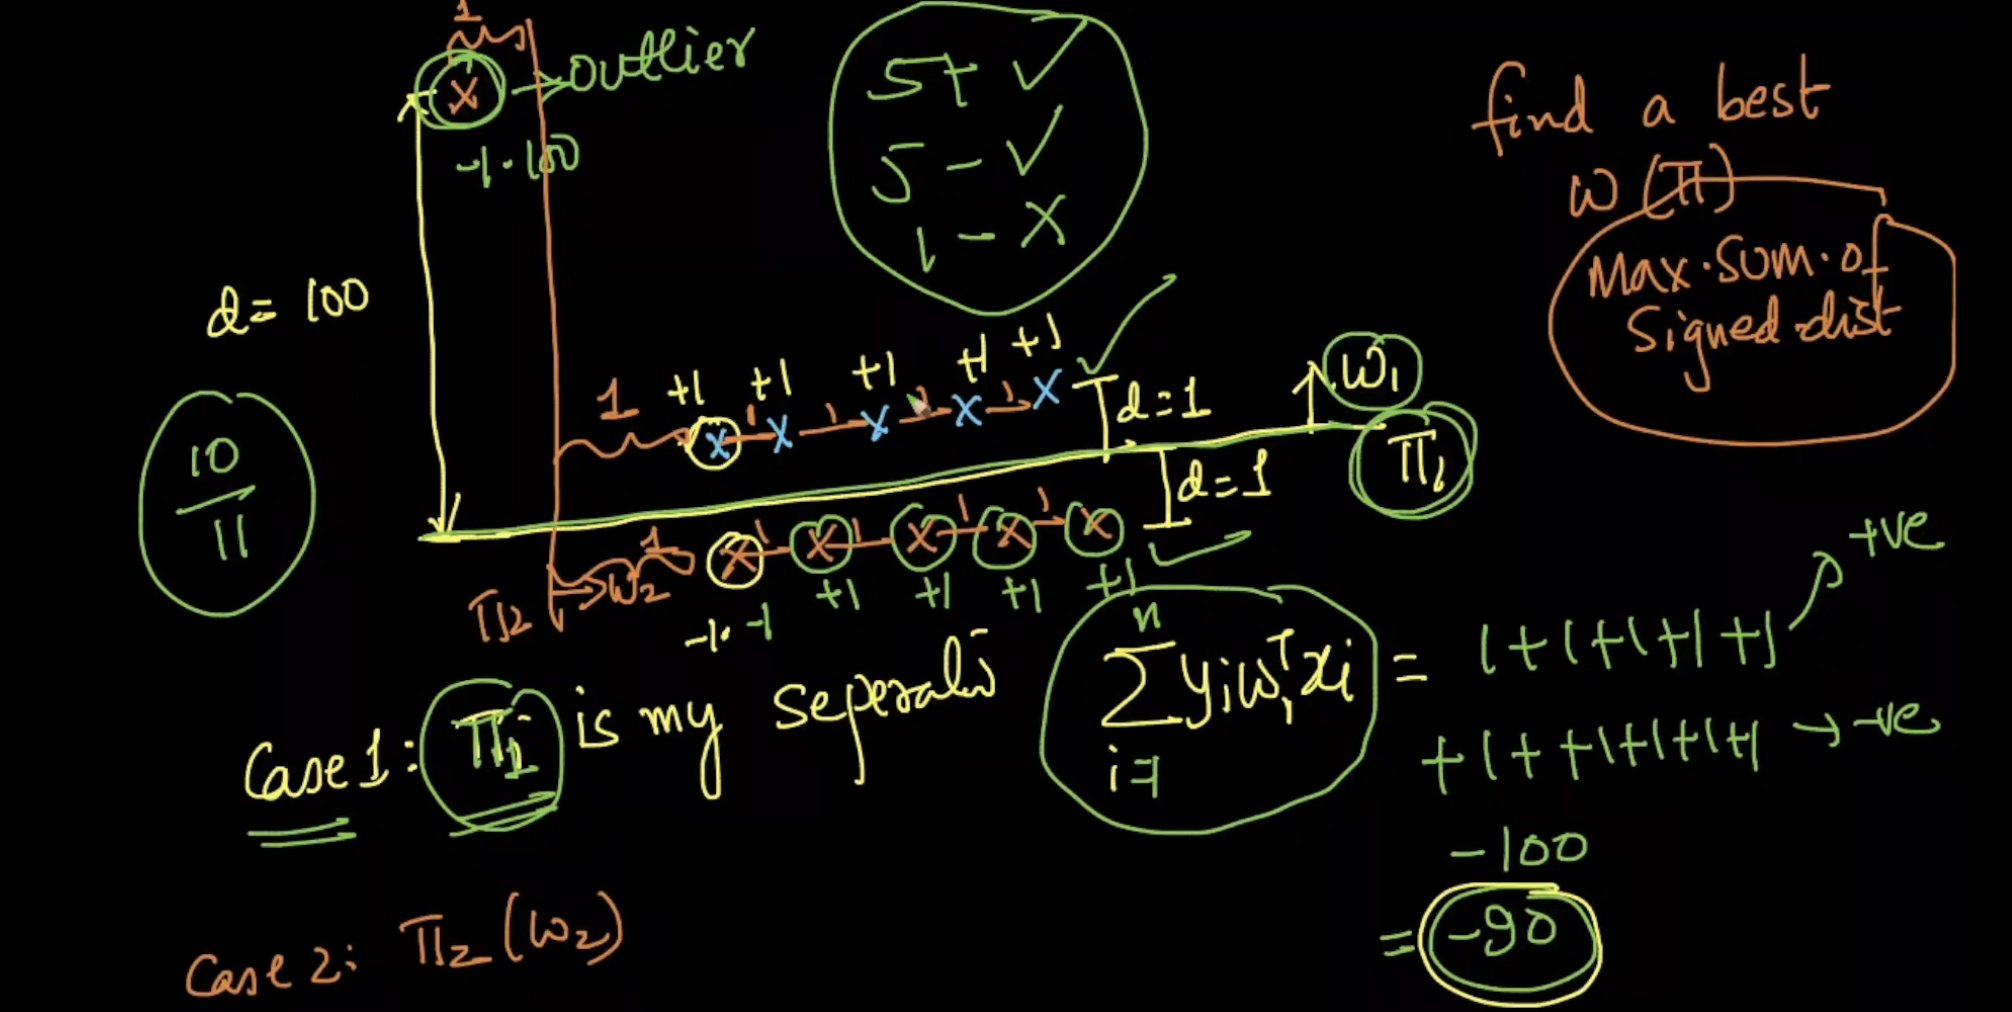 1
x → outlier
-1·100
5+ ✓
5 - ✓
1 - X
find a best
w (π)
Max·sum·of
signed·dist
d= 100
10
11
1 +1 +1 +1 +1 +1
1 1 1 1
x x x x x
d=1
w₁
π₁
d=1
1 1 1 1 1
x x x x x
π₂ w₂
-1·-1 +1 +1 +1 +1
Case 1: π₁ is my seperati
n
Σ yᵢw₁ᵀxᵢ = 1+1+1+1+1 → +ve
i=1
+1++1+1+1+1 → -ve
-100
= -90
Case 2: π₂ (w₂)